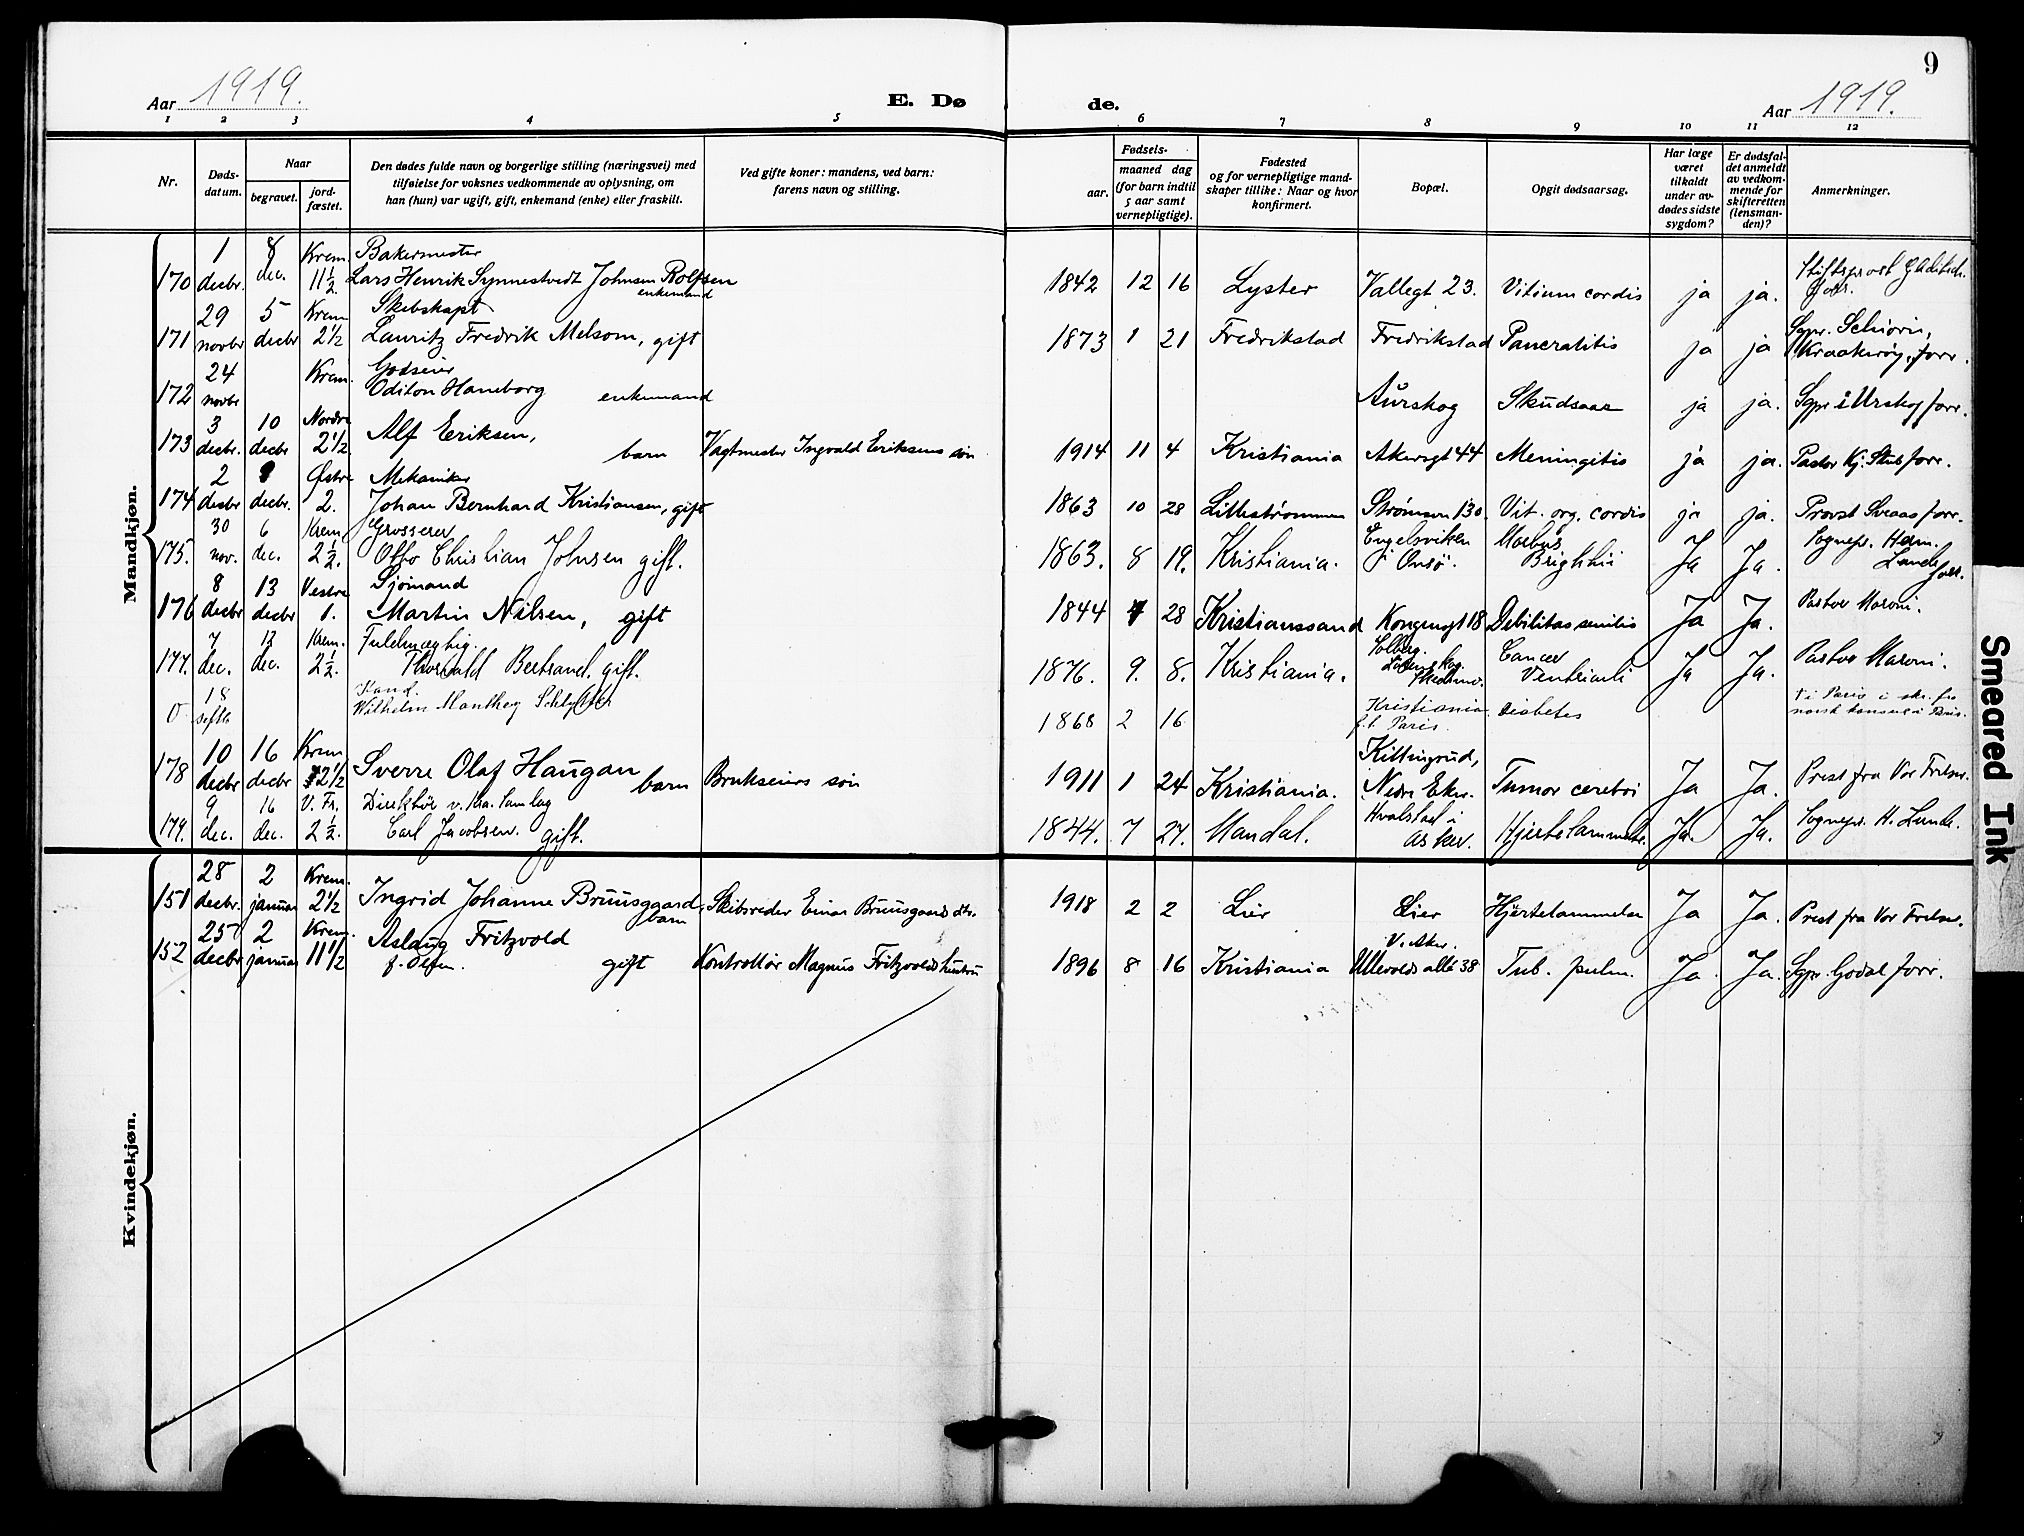 9
Aar 1919.
E. Døde.
Aar 1919.
1 2 3 4 5 6 7 8 9 10 11 12
Nr.
Døds-datum.
Naar
begravet.
jord-fæstet.
Den dødes fulde navn og borgerlige stilling (næringsvei) med
tilføielse for voksnes vedkommende av oplysning, om
han (hun) var ugift, gift, enkemand (enke) eller fraskilt.
Ved gifte koner: mandens, ved barn:
farens navn og stilling.
Fødsels-
aar.
maaned dag
(for barn indtil
5 aar samt
vernepligtige).
Fødested
og for vernepligtige mand-
skaper tillike: Naar og hvor
konfirmert.
Bopæl.
Opgit dødsaarsag.
Har læge
været
tilkaldt
under av-
dødes sidste
sygdom?
Er dødsfal-
det anmeldt
av vedkom-
mende for
skifteretten
(lensman-
den)?
Anmerkninger.
Mandkjøn.
1 8 Krem. Bakermester
170 decbr. dec. 11½ Lars Henrik Synnestvedt Johnsen Rolfsen enkemand 1842 12 16 Lyster Vallegt 23. Vitium cordis ja ja. Stiftsprost Gladtsch. forr.
29 5 Krem Skibskapt
171 novbr decbr 2½ Lauritz Fredrik Melsom, gift 1873 1 21 Fredrikstad Fredrikstad Pancratitis ja ja Sgpr. Schiørn, Kraakerøy, forr.
24 Krem. Godseier
172 novbr Oditon Haneborg enkemand Aurskog Skudsaar ja ja. Sgpr i Urskog forr.
3 10 Nordre
173 decbr. decbr 2½. Alf Eriksen, barn Vagtmester Ingvald Eriksens søn 1914 11 4 Kristiania Akersgt 44 Meningitis ja ja. Pastor Kj. Stub forr.
2 9 Østre Mekaniker
174 decbr decbr. 2. Johan Bernhard Kristiansen, gift 1863 10 28 Lillestrømmen Strømsvn 130. Vit. org. cordis ja ja. Provst Sveaas forr.
30 6 Krem Grosserer
175. nov. dec. 2½. Otto Christian Johnsen gift. 1863. 8 19. Kristiania. Engelsviken i Onsö. Morbus Brightii Ja Ja. Sognepr. Herm. Lunde forr.
8 13 Vestre Sjömand
176 decbr decbr 1. Martin Nilsen, gift 1844 4 28 Kristianssand Kongensgt 18 Debilitas senilis Ja Ja. Pastor Maroni.
7 13 Krem. Fuldmægtig.
177. dec. dec. 2½. Thorvald Bertrand. gift. 1876. 9. 8. Kristiania. Solberg. Lörenskog. Skedsmo. Cancer Ventriculi Ja Ja. Pastor Maroni.
18 Kand.
0 septbr Wilhelm Manthey Schlytter 1868 2 16 Kristiania f.t. Paris. Diabetes † i Paris i skr. fra norsk konsul i Paris.
10 16 Krem
178 decbr decbr 2½ Sverre Olaf Haugan barn Brukseiers søn 1911 1 24 Kristiania. Killingrud, Nedre Eker. Tumor cerebri Ja Ja. Prest fra Vor Frelser.
9 16 V. Fr. Direktör v. Kra. Samlag
179. dec. dec. 2½. Carl Jacobsen. gift. 1844. 7 27. Mandal. Hvalstad i Asker. Hjertelammelse. Ja. Ja. Sognepr. H. Lunde.
Kvindekjøn.
28 2 Krem.
151 decbr. januar 2½ Ingrid Johanne Bruusgaard. barn Skibsreder Einar Bruusgaards dtr. 1918 2 2 Lier Lier Hjertelammelse Ja Ja. Prest fra Vor Frelser.
25 2 Krem.
152 decbr januar 11½ Aslaug Fritzvold f. Olsen. gift Kontrollør Magnus Fritzvolds hustru 1896 8 16 Kristiania V. Aker. Ullevolds allé 38 Tub. pulm. Ja Ja. Sgpr. Godal forr.
Smeared Ink